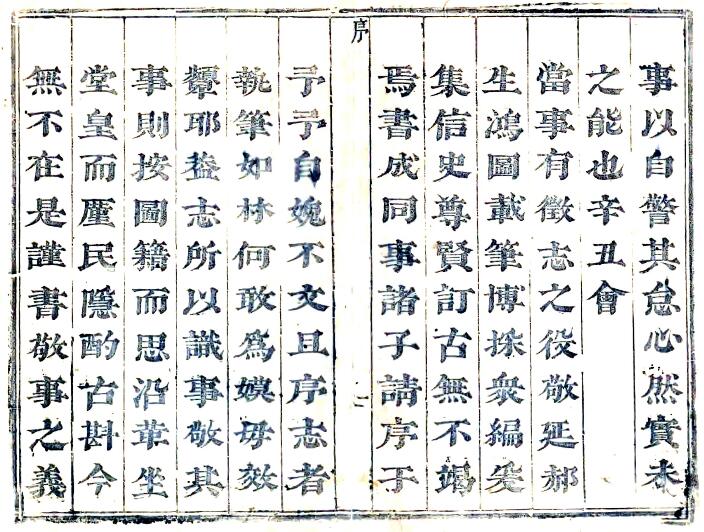 事以自警其怠心然實未
之能也辛丑會
當事有徵志之役敬延郝
生鴻圖載筆博採衆編爰
集信史尊賢訂古無不竭
焉書成同事諸子請序于
序
予予自婉不文且序志者
執筆如林何敢爲嫫母效
顰耶盖志所以識事敬其
事則按圖籍而思沿革坐
堂皇而釐民隱酌古斟今
無不在是謹書敬事之義